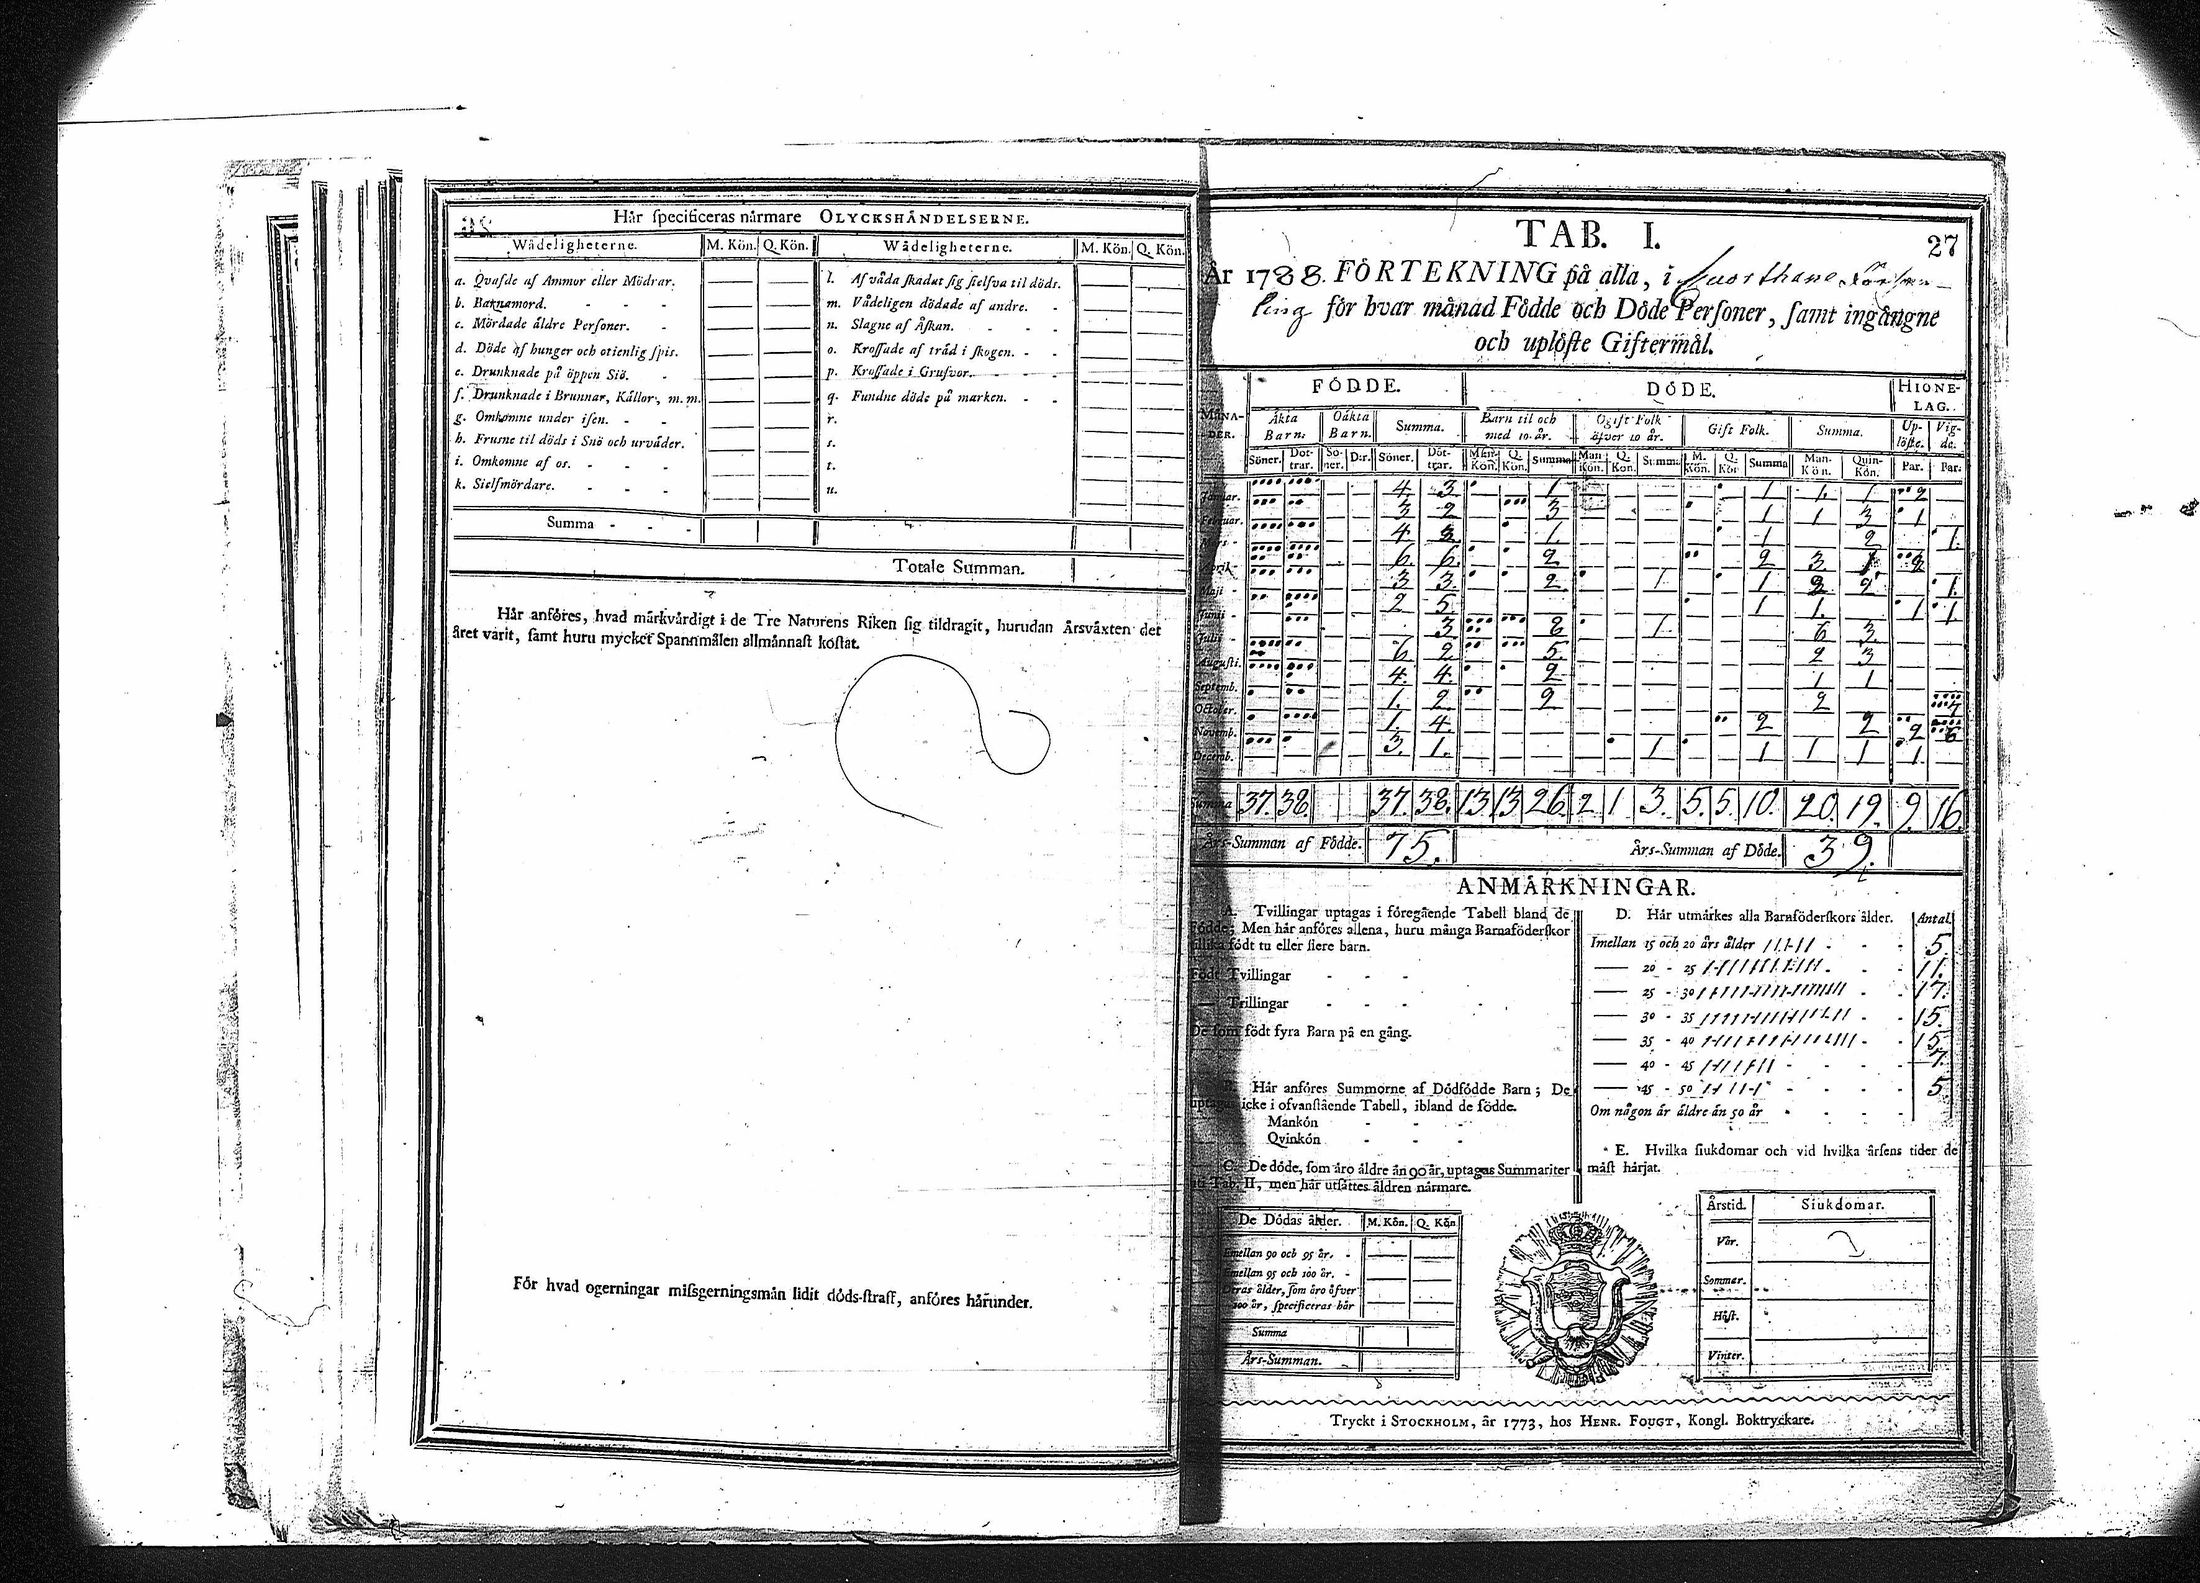 Här ſpecificeras närmare OLYCKSHÄNDELSERNE.
Wådeligheterne. M. Kön. Q. Kön. Wådeligheterne. M. Kön. Q. Kön.
a. Qvafde af Ammor eller Mödrar.
b. Barnamord. - - -
c. Mördade äldre Perſoner. -
d. Döde af hunger och otienlig ſpis.
e. Drunknade på öppen Siö. -
f. Drunknade i Brunnar, Källor, m. m.
g. Omkomne under iſen. - -
h. Fruſne til döds i Snö och urväder.
i. Omkomne af os. - - -
k. Sielfmördare. - - -
l. Af våda ſkadat ſig ſielfva til döds.
m. Vådeligen dödade af andre. -
n. Slagne af Åſkan. - - -
o. Kroſſade af träd i ſkogen. - -
p. Kroſſade i Grufvor. - - -
q. Fundne döde på marken. - -
r.
s.
t.
u.
Summa - - -
Totale Summan.
Här anföres, hvad märkvärdigt i de Tre Naturens Riken ſig tildragit, hurudan Årsväxten det
året varit, ſamt huru mycket Spannmålen allmännaſt koſtat.
För hvad ogerningar miſsgerningsmän lidit döds-ſtraff, anföres härunder.
TAB. I.
27
År 1788. FÖRTEKNING på alla, i Cuorthane Förſam-
ling för hvar månad Födde och Döde Perſoner, ſamt ingångne
och uplöſte Giftermål.
MÅNA-DER. FÖDDE. DÖDE. HIONE-LAG.
Äkta Barn. Oäkta Barn. Summa. Barn til och med 10 år. Ogift Folk öfver 10 år. Gift Folk. Summa. Up-löſte. Vig-de.
Söner. Döt-trar. Sö-ner. D:r. Söner. Döt-trar. Man-Kön. Q. Kön. Summa Man Kön. Q. Kön. Summa M. Kön. Q. Kön Summa Man-Kön. Quin-Kön. Par. Par.
Januar. 4. 3. 1 1 1. 1 2
Februar. 3 2 3 1 1 3 1
Mars - 4 3. 1. 1 2 1.
April - 6. 6. 2 2 3 1 2
Maji - 3 3. 2. 1 1 2 2 1.
Junii - 2 5. 1 1. 1 1.
Julii - 3 8 1 6 3.
Auguſti. 6 2 5. 2 3
Septemb. 4. 4. 2 1 1
October. 1. 2 2 2 7
Novemb. 1. 4. 2 2 2 6
Decemb. 3. 1. 1 1 1 1 1.
Summa 37. 38. 37. 38. 13 13 26. 2 1 3. 5. 5. 10. 20. 19. 9. 16.
Års-Summan af Födde. 75. Års-Summan af Döde. 39.
ANMÄRKNINGAR.
A. Tvillingar uptagas i föregående Tabell bland de
Födde; Men här anföres allena, huru många Barnaföderſkor
tillika födt tu eller flere barn.
Födt Tvillingar - - -
— Trillingar - - -
De ſom födt fyra Barn på en gång.
B. Här anföres Summorne af Dödfödde Barn; De
uptagas icke i ofvanſtående Tabell, ibland de födde.
Mankön - - -
Qvinkön - - -
C. De döde, ſom äro äldre än 90 år, uptagas Summariter
uti Tab. II, men här utſättes åldren närmare.
De Dödas ålder. M. Kön. Q. Kön
Emellan 90 och 95 år. -
Emellan 95 och 100 år. -
Deras ålder, ſom äro öfver
100 år, ſpecificeras här
Summa
Års-Summan.
D. Här utmärkes alla Barnföderſkors ålder. Antal.
Imellan 15 och 20 års ålder - - - 5
— 20 - 25 - - 11.
— 25 - 30 - - 17.
— 30 - 35 - - 15.
— 35 - 40 - - 15
— 40 - 45 - - - - 7.
— 45 - 50 - - - - 5
Om någon är äldre än 50 år - - - -
E. Hvilka ſiukdomar och vid hvilka årſens tider de
mäſt härjat.
Årstid. Siukdomar.
Vår.
Sommar.
Höſt.
Vinter.
Tryckt i STOCKHOLM, år 1773, hos HENR. FOUGT, Kongl. Boktryckare.